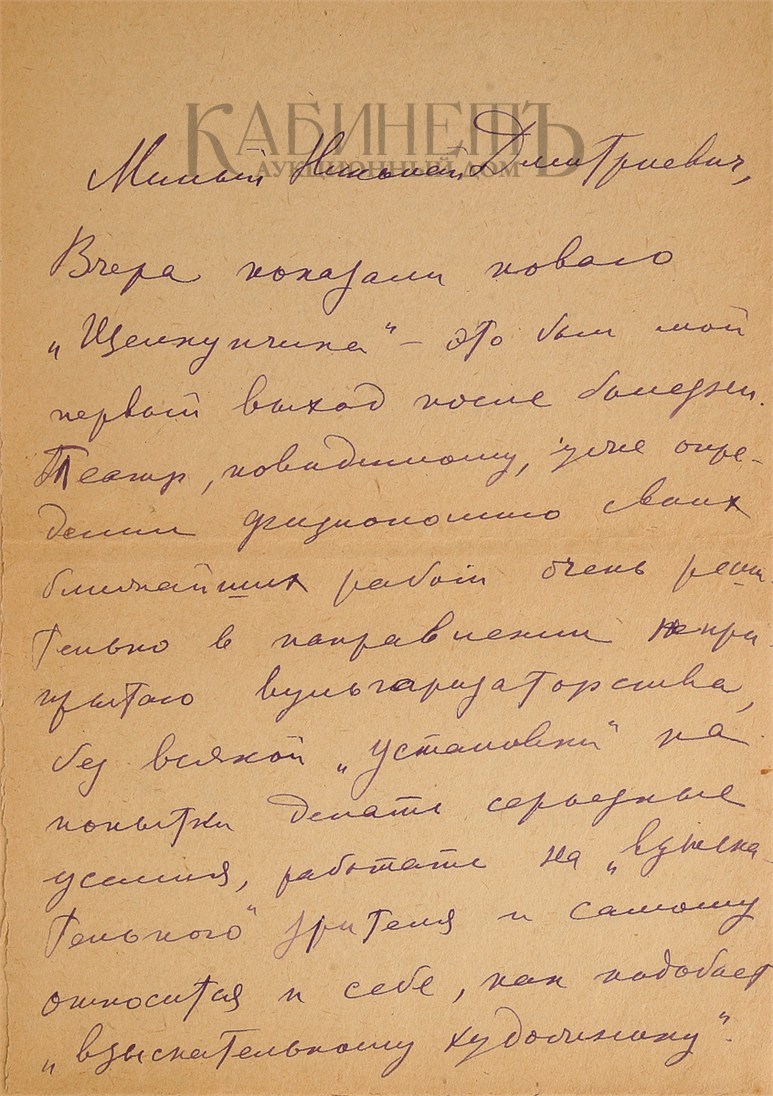 КАБИНЕТЪ
АУКЦИОННЫЙ ДОМ
Милый Николай Дмитриевич,
Вчера показали нового
„Щелкунчика“ – это был мой
первый выход после болезни.
Театр, повидимому, уже опре-
делил физиономию своих
ближайших работ очень реши-
тельно в направлении непри-
крытого вульгаризаторства,
без всякой „установки“ на
попытки делать серьезные
усилия, работать на „взыска-
тельного“ зрителя и самому
относится к себе, как подобает
„взыскательному художнику“.